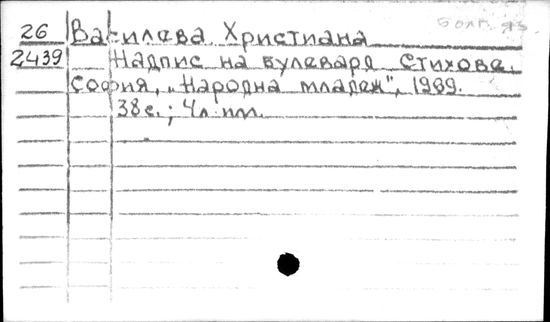 Болг. яз.
26 Василева Христиана
2439 Надпис на булеварда Стихове.
София, „Народна младеж", 1989.
38с.; 4л. ил.